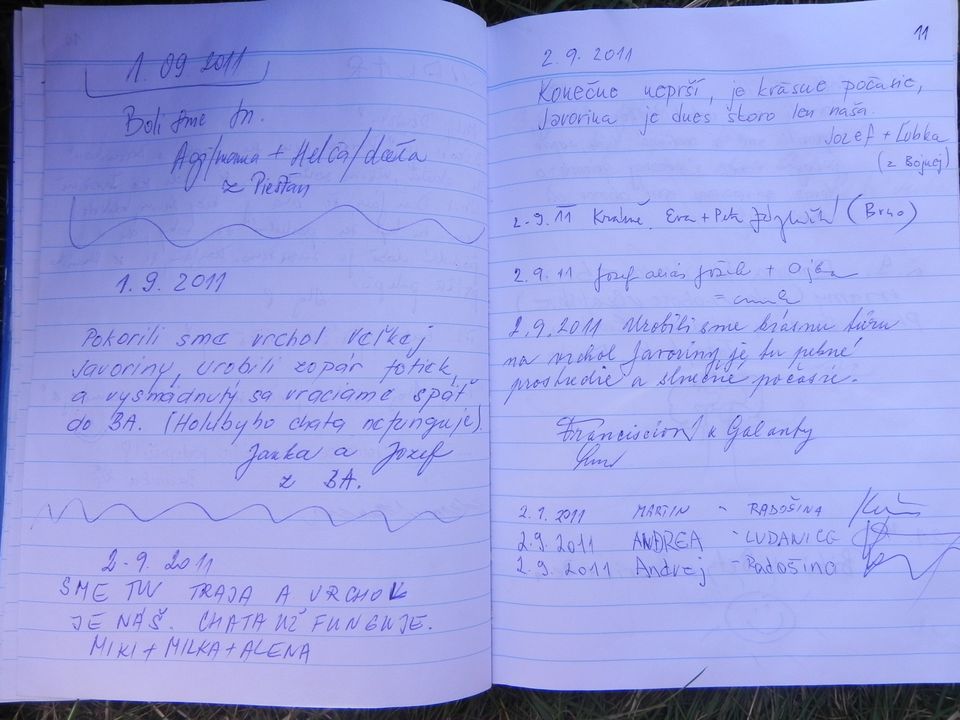 1. 09 2011
Boli sme tu.
Agi/mama + Helča/dcéra
z Piešťan
1. 9. 2011
Pokorili sme vrchol Veľkej
Javoriny, urobili zopár fotiek,
a vysmädnutý sa vraciame späť
do BA. (Holubyho chata nefunguje).
Janka a Jozef
z BA.
2-9. 2011
SME TU TRAJA A VRCHOL
JE NÁŠ. CHATA UŽ FUNGUJE.
MIKI + MILKA + ALENA
11
2. 9. 2011
Konečne neprší, je krásne počasie,
Javorina je dnes skoro len naša.
Jozef + Ľubka
(z Bojnej)
2-9. 11 Krásné. Eva + Petr (Brno)
2. 9. 11 Jozef alias Jožik +
2. 9. 2011 Urobili sme krásnu túru
na vrchol Javoriny, je tu pekné
prostredie a slnečné počasie.
z Galanty
2. 9. 2011 MARTIN - RADOŠINA
2. 9. 2011 ANDREA - LUDANICE
2. 9. 2011 Andrej - Radošina